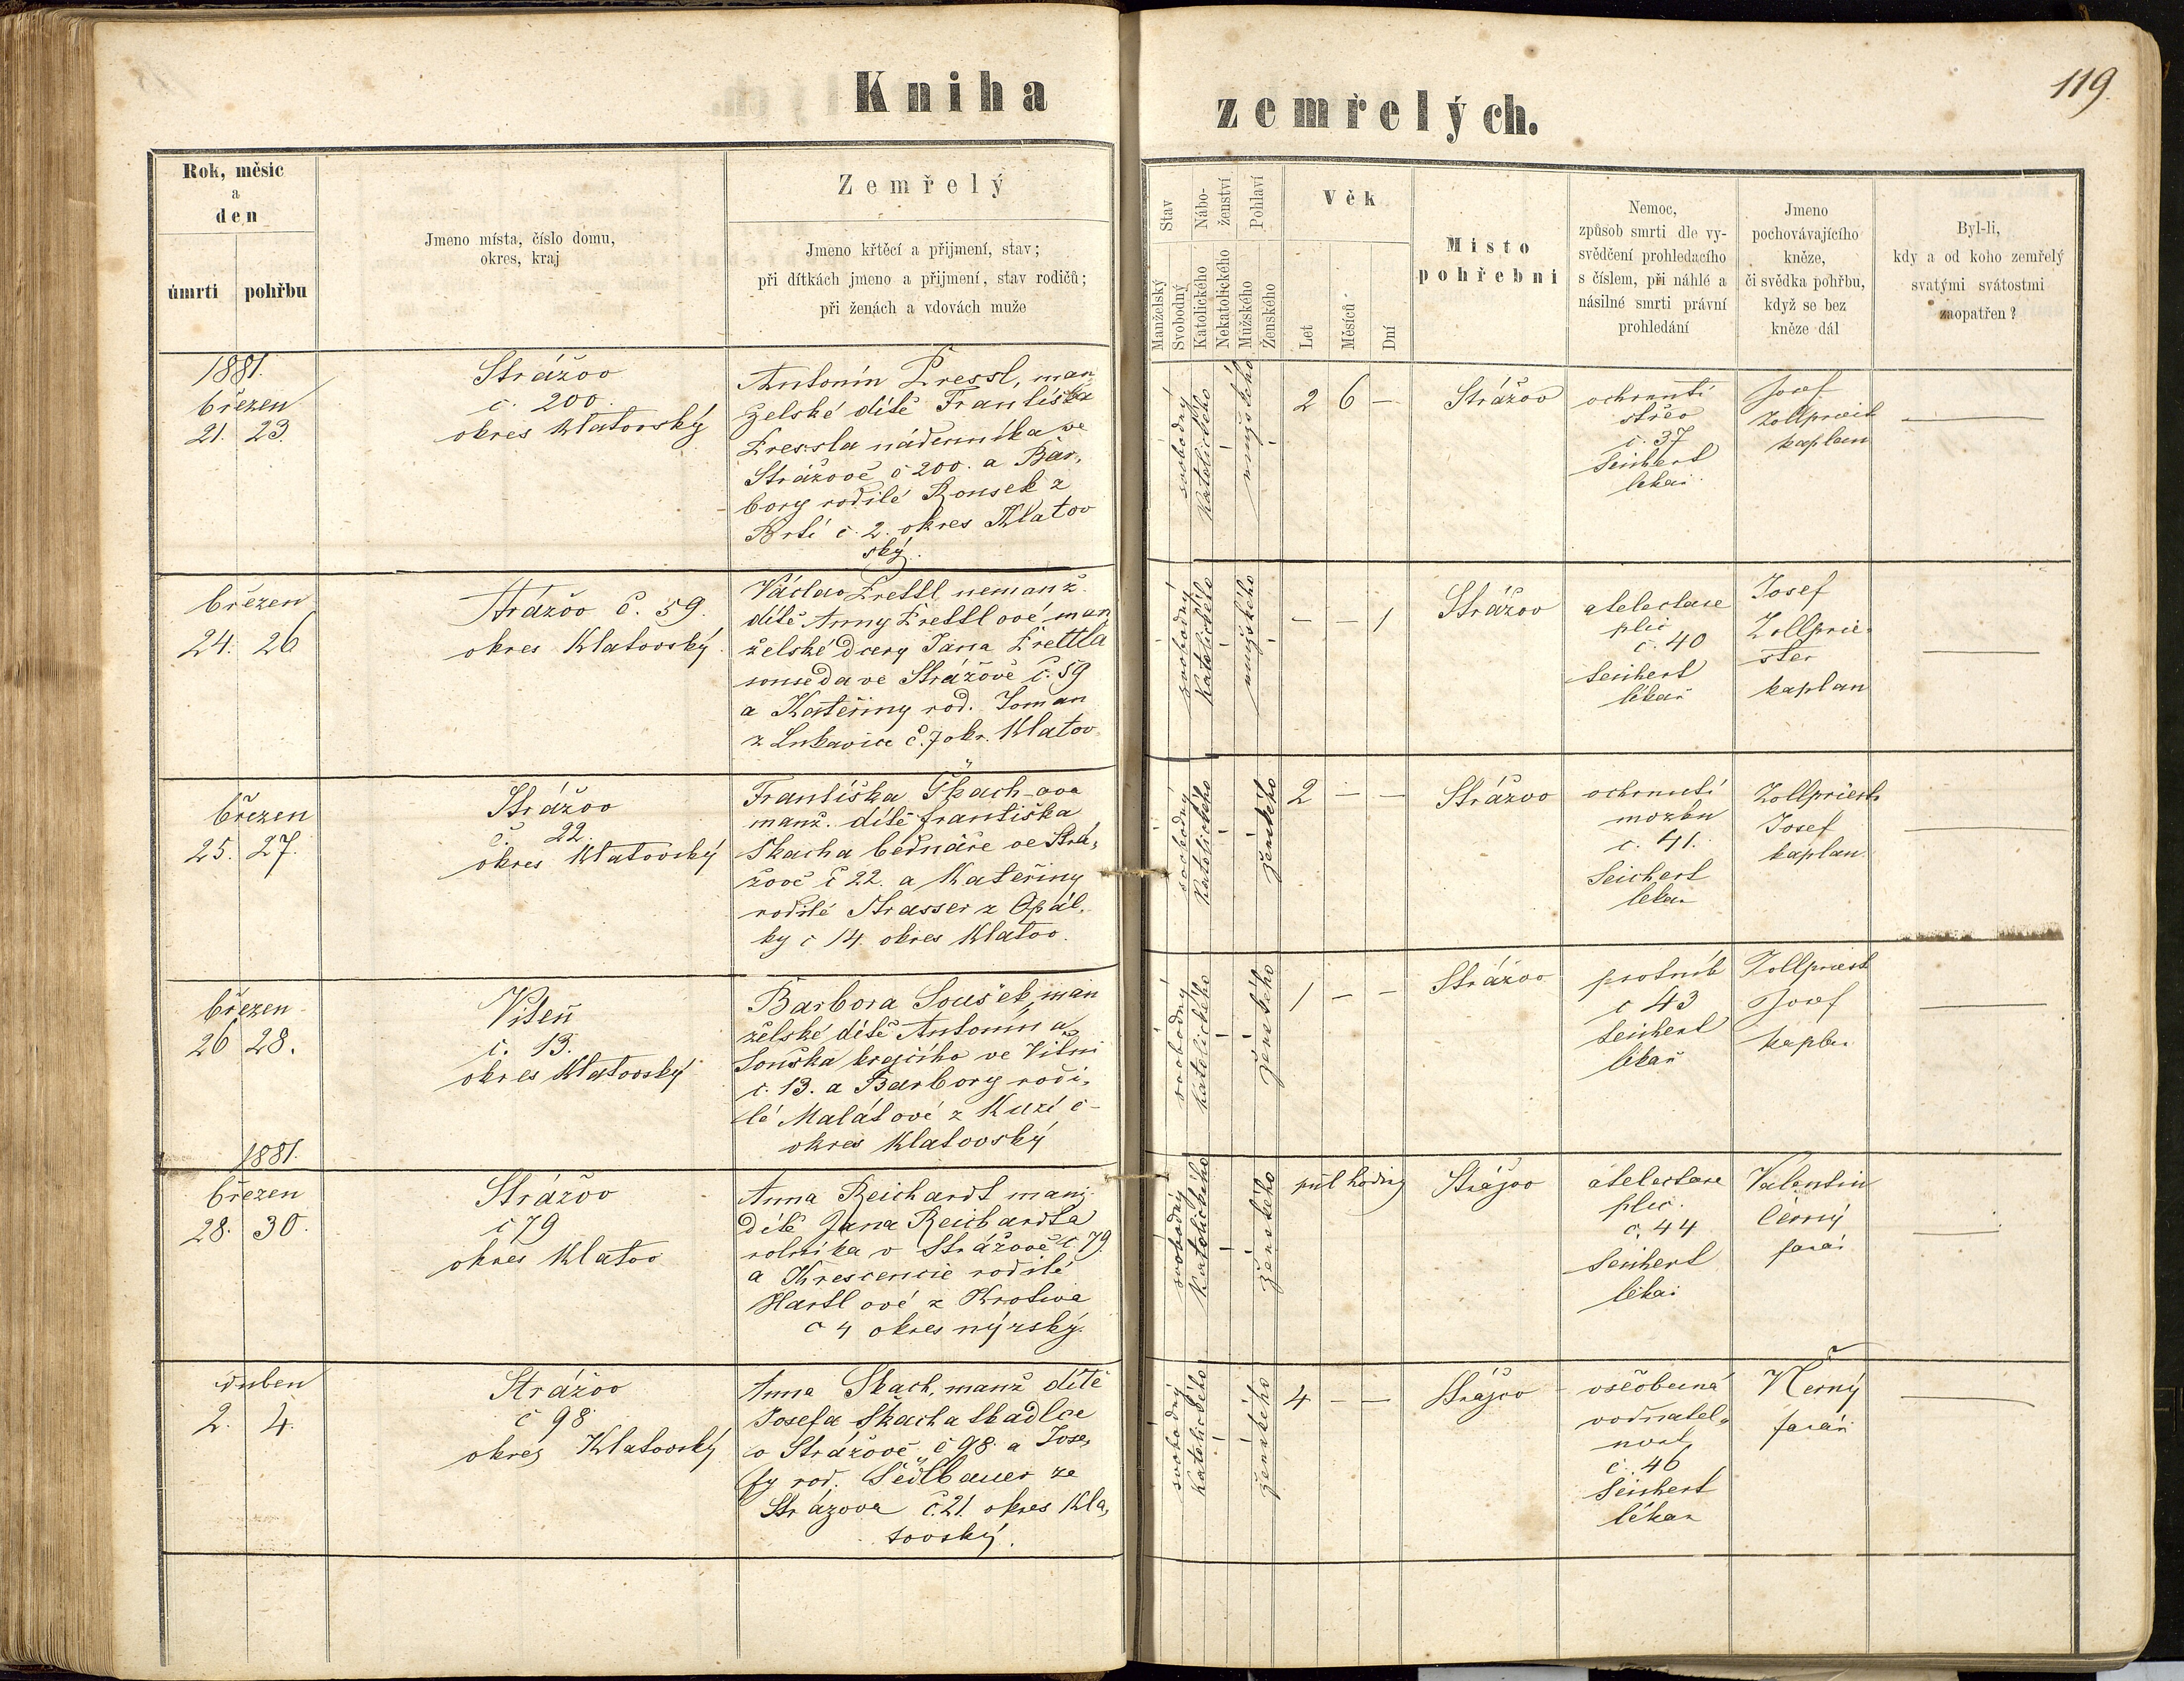 Kniha zemřelých.
119.
Rok, měsíc
a
den
úmrti
pohřbu
Jmeno místa, číslo domu,
okres, kraj
Zemřelý
Jmeno křtěcí a přijmení, stav;
při dítkách jmeno a přijmení, stav rodičů;
při ženách a vdovách muže
Stav
Manželský
Svobodný
Nábo-
ženství
Katolického
Nekatolického
Pohlaví
Mužského
Ženského
Věk
Let
Měsíců
Dní
Místo
pohřebni
Nemoc,
způsob smrti dle vy-
svědčení prohledacího
s číslem, při náhlé a
násilné smrti právní
prohledání
Jmeno
pochovávajícího
kněze,
či svědka pohřbu,
když se bez
kněze dál
Byl-li,
kdy a od koho zemřelý
svatými svátostmi
zaopatřen?
1881.
březen
21. 23.
Strážov
č. 200.
okres Klatovský
Antonín Pressl, man
želské dítě Františka
Pressla nádenníka ve
Strážově č 200. a Bar,
bory rodilé Rousek z
Brtí č. 2. okres Klatov
ský.
svobodný
Katolického
mužského
2 6 —
Strážov
ochrnutí
střev
č. 37
Seichert
lékař
Josef
Zollpriest
kaplan
březen
24. 26
Strážov č. 59.
okres Klatovský.
Václav Prettl nemanž.
dítě Anny Prettlové man
želské dcery Jana Prettla
souseda ve Strážově č. 59
a Kateřiny rod. Toman
z Lukavice č. 7 okr. Klatov
svobodný
Katolického
mužského
— — 1
Strážov
atelectase
plic
č. 40
Seichert
lékař
Josef
Zollprie-
ster
kaplan
březen
25. 27.
Strážov
č. 22.
okres Klatovský
Františka Skach-ova
manž. dítě františka
Skacha bednáře ve Strá,
žově č 22. a Kateřiny
rodilé Strasser z Opál,
ky č 14 okres Klatov.
svobodný
Katolického
ženského
2 — —
Strážov
ochrnutí
mozku
č. 41.
Seichert
lékař
Zollpriest
Josef
kaplan
březen
26 28.
Viteň
č. 13.
okres Klatovský
Barbora Soušek, man
želské dítě Antonína
Souška krejcího ve Vitni
č. 13. a Barbory rodi,
lé Malátové z Kuzí č -
okres Klatovský
svobodný
katolického
ženského
1 — —
Strážov
psotník
č 43
Seichert
lékař
Zollpriest
Josef
kaplan
1881.
březen
28. 30.
Strážov
č 79
okres Klatov
Anna Reichardt manž.
dítě Jana Reichardta
rolníka v Strážově č. 79.
a Krescencie rodilé
Hartlové z Krotiva
č 4 okres nýrský.
svobodný
Katolického
ženského
půl hodiny
Strážov
atelectase
plic.
č. 44
Seichert
lékař
Valentin
Černý
farář
duben
2. 4.
Strážov
č 98
okres Klatovský
Anna Skach, manž dítě
Josefa Skacha tkadlce
v Strážově č 98. a Jose,
fy rod. Sedlbauer ze
Strážova č. 21. okres Kla,
tovský.
svobodný
Katolického
ženského
4 — —
Strážov
všeobecná
vodnatel-
nost
č. 46
Seichert
lékař
Černý
farář